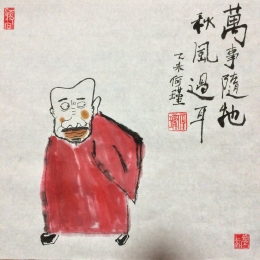 萬事隨他
秋風過耳
乙未何瑾